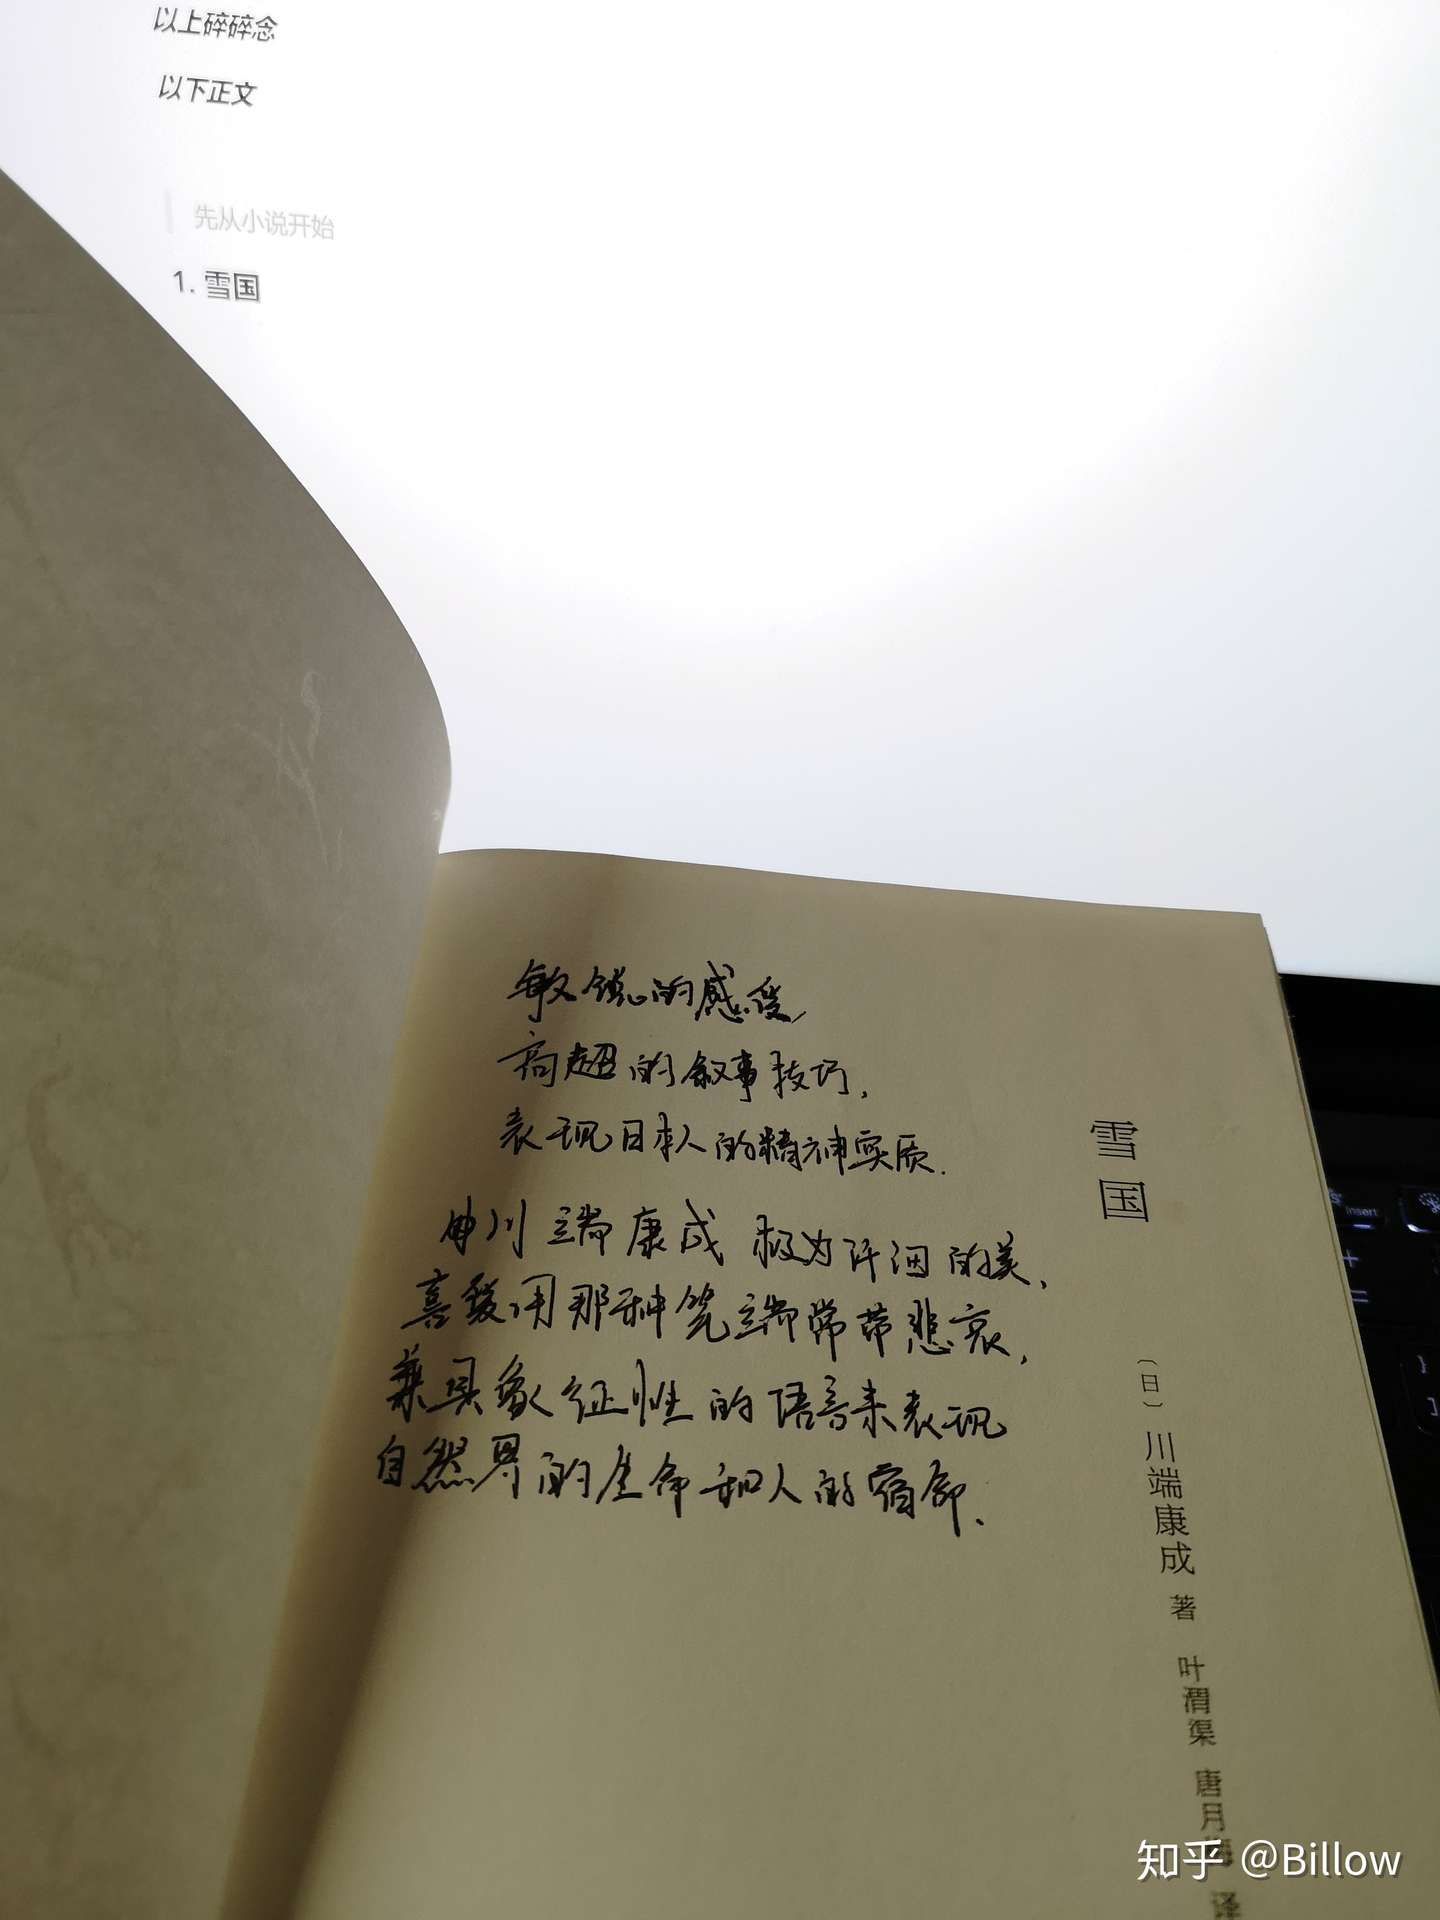 以上碎碎念
以下正文
先从小说开始
1. 雪国
敏锐的感受,
高超的叙事技巧,
表现日本人的精神实质.
川端康成 极为 的美,
喜爱用那种笔端常带悲哀,
兼具象征性的语言来表现
自然界的生命和人的宿命.
雪国
（日）川端康成 著
叶渭渠 唐月梅 译
Insert
知乎 @Billow